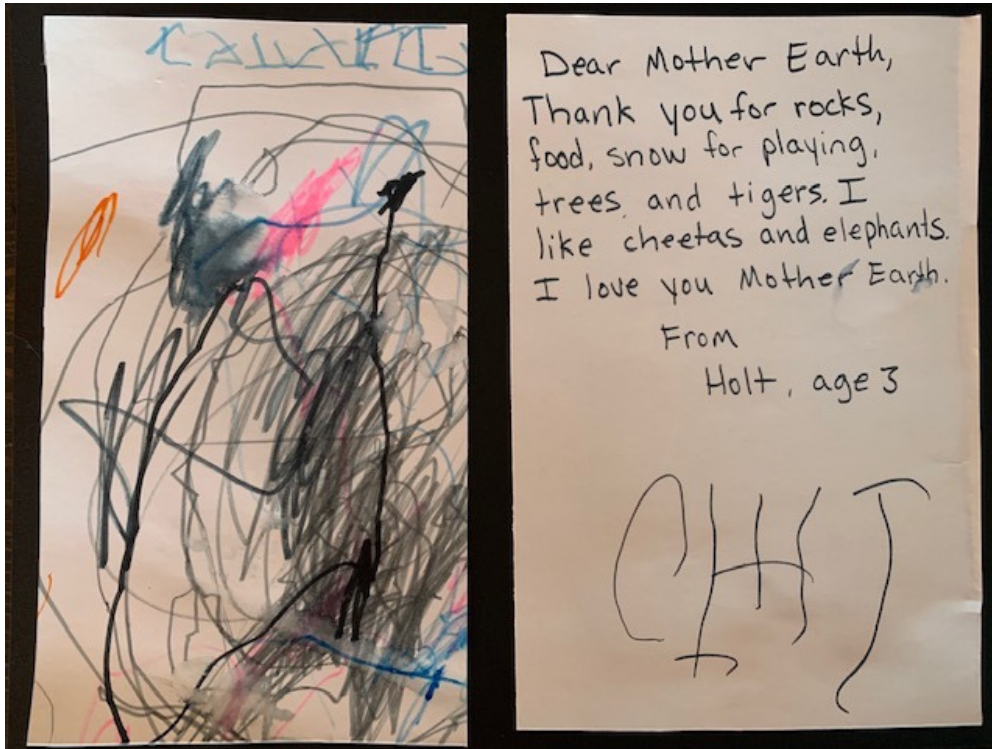 Dear Mother Earth,
Thank you for rocks,
food, snow for playing,
trees, and tigers. I
like cheetas and elephants.
I love you Mother Earth.
From
Holt, age 3